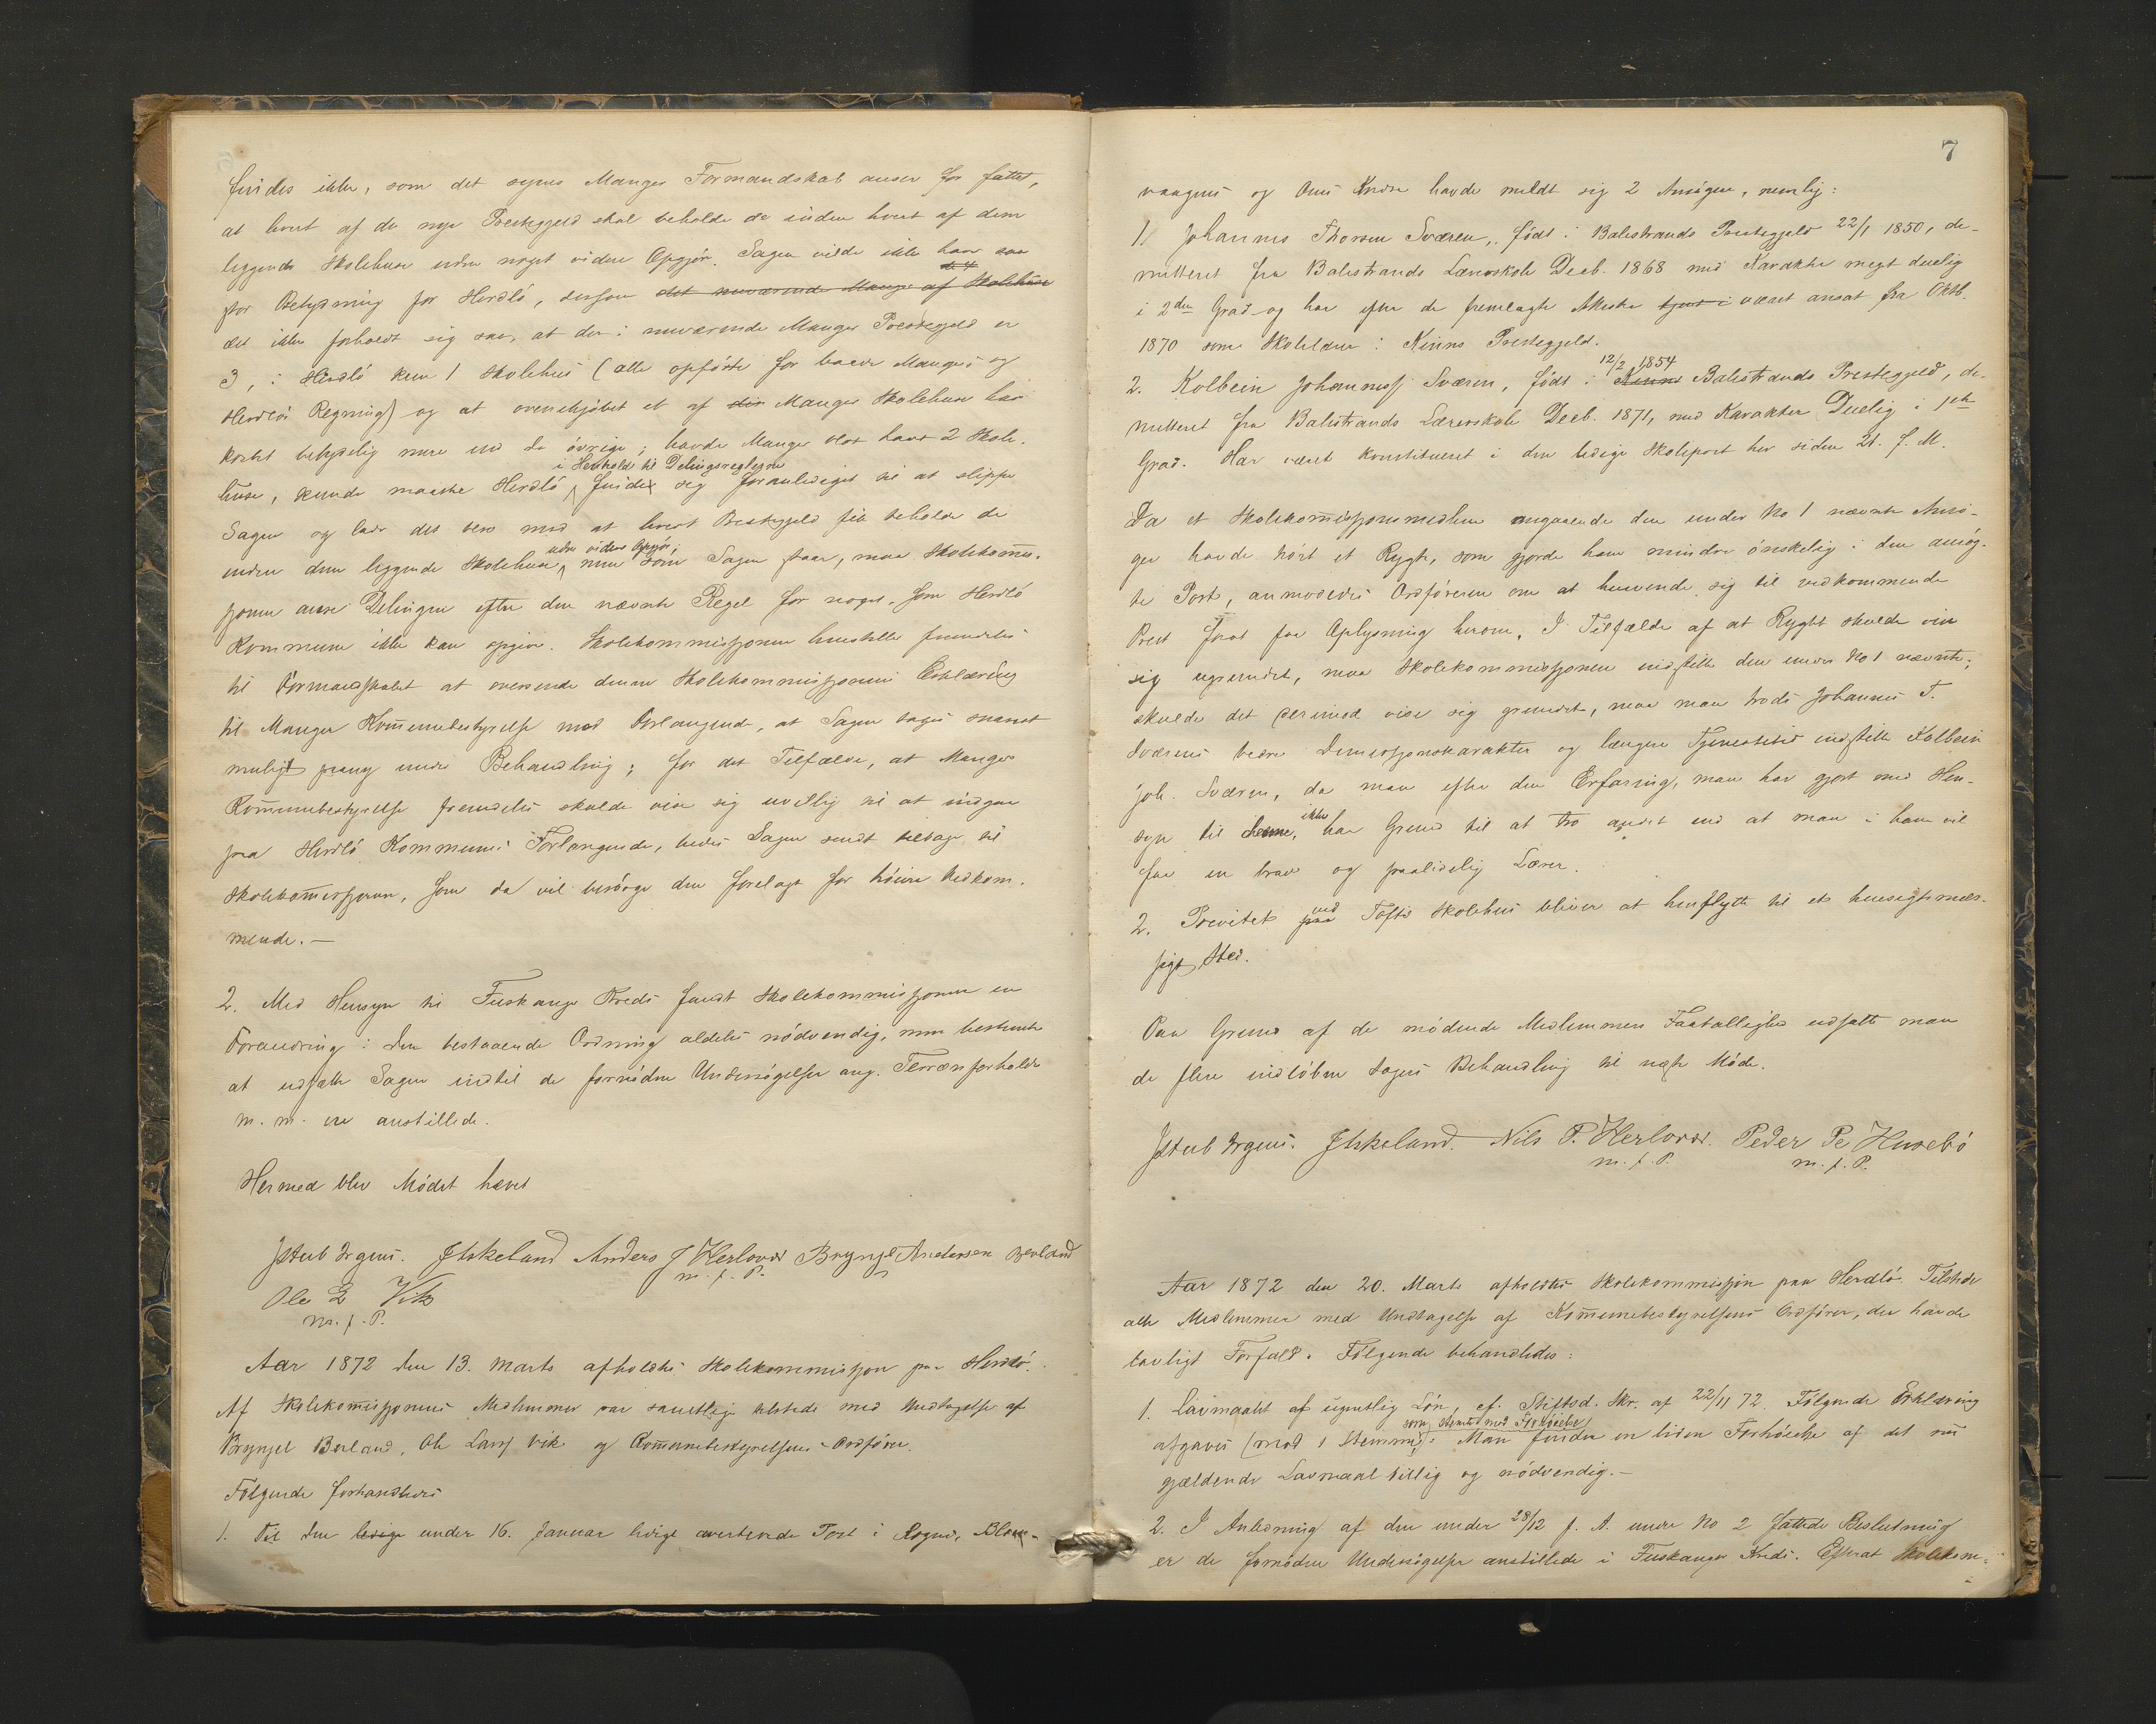 findes ikke, som det synes Manger Formandskab anser for fattet,
at hvert af de nye Prestegjeld skal beholde de inden hvert af dem
liggende Skolehuse uden noget videre Opgjør. Sagen vilde ikke have saa
stor Betydning for Herdlø, dersom det nuværende Manger af Skolehuse
det ikke forholdt sig saa, at der i nuværende Manger Prestegjeld er
3, i Herdlø kun 1 Skolehus (alle opførte for baade Mangers og
Herdløs Regning) og at ovenikjøbet et af Manger Skolehuse har
kostet betydelig mere end de øvrige; havde Manger blot havt 2 Skole-
i Henhold til Delingsreglerne
huse, kunde maaske Herdlø finde sig foranlediget til at slippe
Sagen og lade det bero med at hvert Prestegjeld fik beholde de
uden videre Opgjør;
inden dem liggende Skolehuse, men som Sagen staar, maa Skolekomis-
sjonen anse Delingen efter den nævnte Regel for noget, som Herdlø
Kommune ikke kan opgive. Skolekommissjonen henstiller fremdeles
til Formandskabet at oversende denne Skolekommissjonens Erklæring
til Manger Kommunebestyrelse med Forlangende, at Sagen tages snarest
muligt paany under Behandling; for det Tilfælde, at Manger
Kommunebestyrelse fremdeles skulde vise sig uvillig til at indgaa
paa Herdlø Kommunes Forlangende, bedes Sagen sendt tilbage til
Skolekomissjonen, som da vil besørge den forelagt for høiere Vedkom-
mende.—
2. Med Hensyn til Tuskanger Kreds fandt Skolekommissjonen en
Forandring i den bestaaende Ordning aldeles nødvendig, men besluttede
at udsætte Sagen indtil de fornødne Undersøgelser ang. Terrænforholde
m. m. ere anstillede.
Hermed blev Mødet hævet
JStub Irgens. JAskeland Anders J Herlover Brynjel Andersen Berland
m. f. P.
Ole L Vik
m. f. P.
Aar 1872 den 13. Marts afholdtes Skolekommissjon paa Herdlø.
Af Skolekomissjonens Medlemmer var samtlige tilstede med Undtagelse af
Brynjel Berland, Ole Larss Vik og Kommunebestyrelsens Ordfører.
Følgende forhandledes
1. Til den ledige under 16. Januar ledigt averterede Post i Rogns, Blom-
7
vaagens og Oens Kredse havde meldt sig 2 Ansøgere, nemlig:
1) Johannes Thorsen Sværen, født i Balestrands Prestegjeld 22/1 1850, de-
mitteret fra Balestrands Lærerskole Decb. 1868 med Karakter meget duelig
i 2den Grad og har efter de fremlagte Attester tjent i været ansat fra Oktb.
1870 som Skolelærer i Kinns Prestegjeld.
12/2 1854
2. Kolbein Johanness Sværen, født i Kinns Balestrands Prestegjeld, de-
mitteret fra Balestrands Lærerskole Decb. 1871, med Karakter Duelig i 1ste
Grad. Har været konstitueret i den ledige Skolepost her siden 21. f. M.
Da et Skolekomissjonsmedlem angaaende den under No 1 nævnte Ansø-
ger havde hørt et Rygte, som gjorde ham mindre ønskelig i den ansøg-
te Post, anmodedes Ordføreren om at henvende sig til vedkommende
Prest forat faa Oplysning herom. I Tilfælde af at Rygtet skulde vise
sig ugrundet, maa Skolekommissjonen indstille den under No 1 nævnte;
skulde det derimod vise sig grundet, maa man trods Johannes T.
Sværens bedre Demissjonskarakter og længere Tjenestetid indstille Kolbein
Joh. Sværen, da man efter den Erfaring, man har gjort med Hen-
ikke
syn til denne, har Grund til at tro andet end at man i ham vil
faa en brav og paalidelig Lærer.
2. Privetet paa ved Tofte Skolehus bliver at henflytte til et hensigtsmæs-
sigt Sted.
Paa Grund af de mødende Medlemmers Faatallighed udsatte man
de flere indløbne Sagers Behandling til næste Møde.
JStub Irgens. JAskeland. Nils P. Herlover. Peder Pe Husebø
m. f. P. m. f. P.
Aar 1872 den 20. Marts afholdtes Skolekommissjon paa Herdlø. Tilstede
alle Medlemmer med Undtagelse af Kommunebestyrelsens Ordfører, der havde
lovligt Forfald. Følgende behandledes:
1. Lavmaalet af ugentlig Løn, cf. Stiftsd. Skr. af 22/11 72. Følgende Erklæring
som stemte mod Forhøielse
afgaves (mod 1 Stemme): Man finder en liden Forhøielse af det nu
gjældende Lavmaal billig og nødvendig.—
2. I Anledning af den under 28/12 f. A. under No 2 fattede Beslutning
er de fornødne Undersøgelser anstillede i Tuskanger Kreds. Efterat Skolekom-